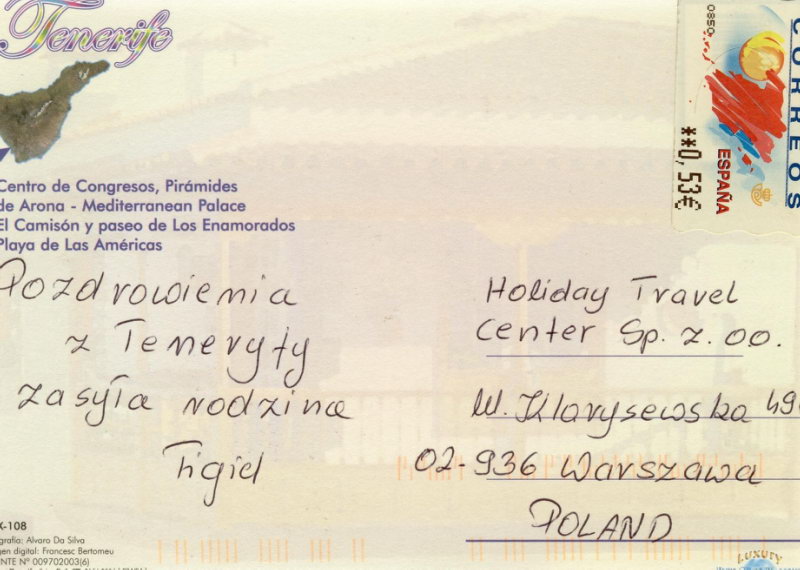 Tenerife
Centro de Congresos, Pirámides
de Arona - Mediterranean Palace
El Camisón y paseo de Los Enamorados
Playa de Las Américas
Pozdrowienia
z Teneryfy
zasyła rodzina
Figiel
X-108
grafia: Alvaro Da Silva
gen digital: Francesc Bertomeu
ENTE Nº 009702003(6)
0580
CORREOS
ESPAÑA
**0,53€
Holiday Travel
Center Sp. z. oo.
ul. Klarysewska 49
02-936 Warszawa
POLAND
LUXURY